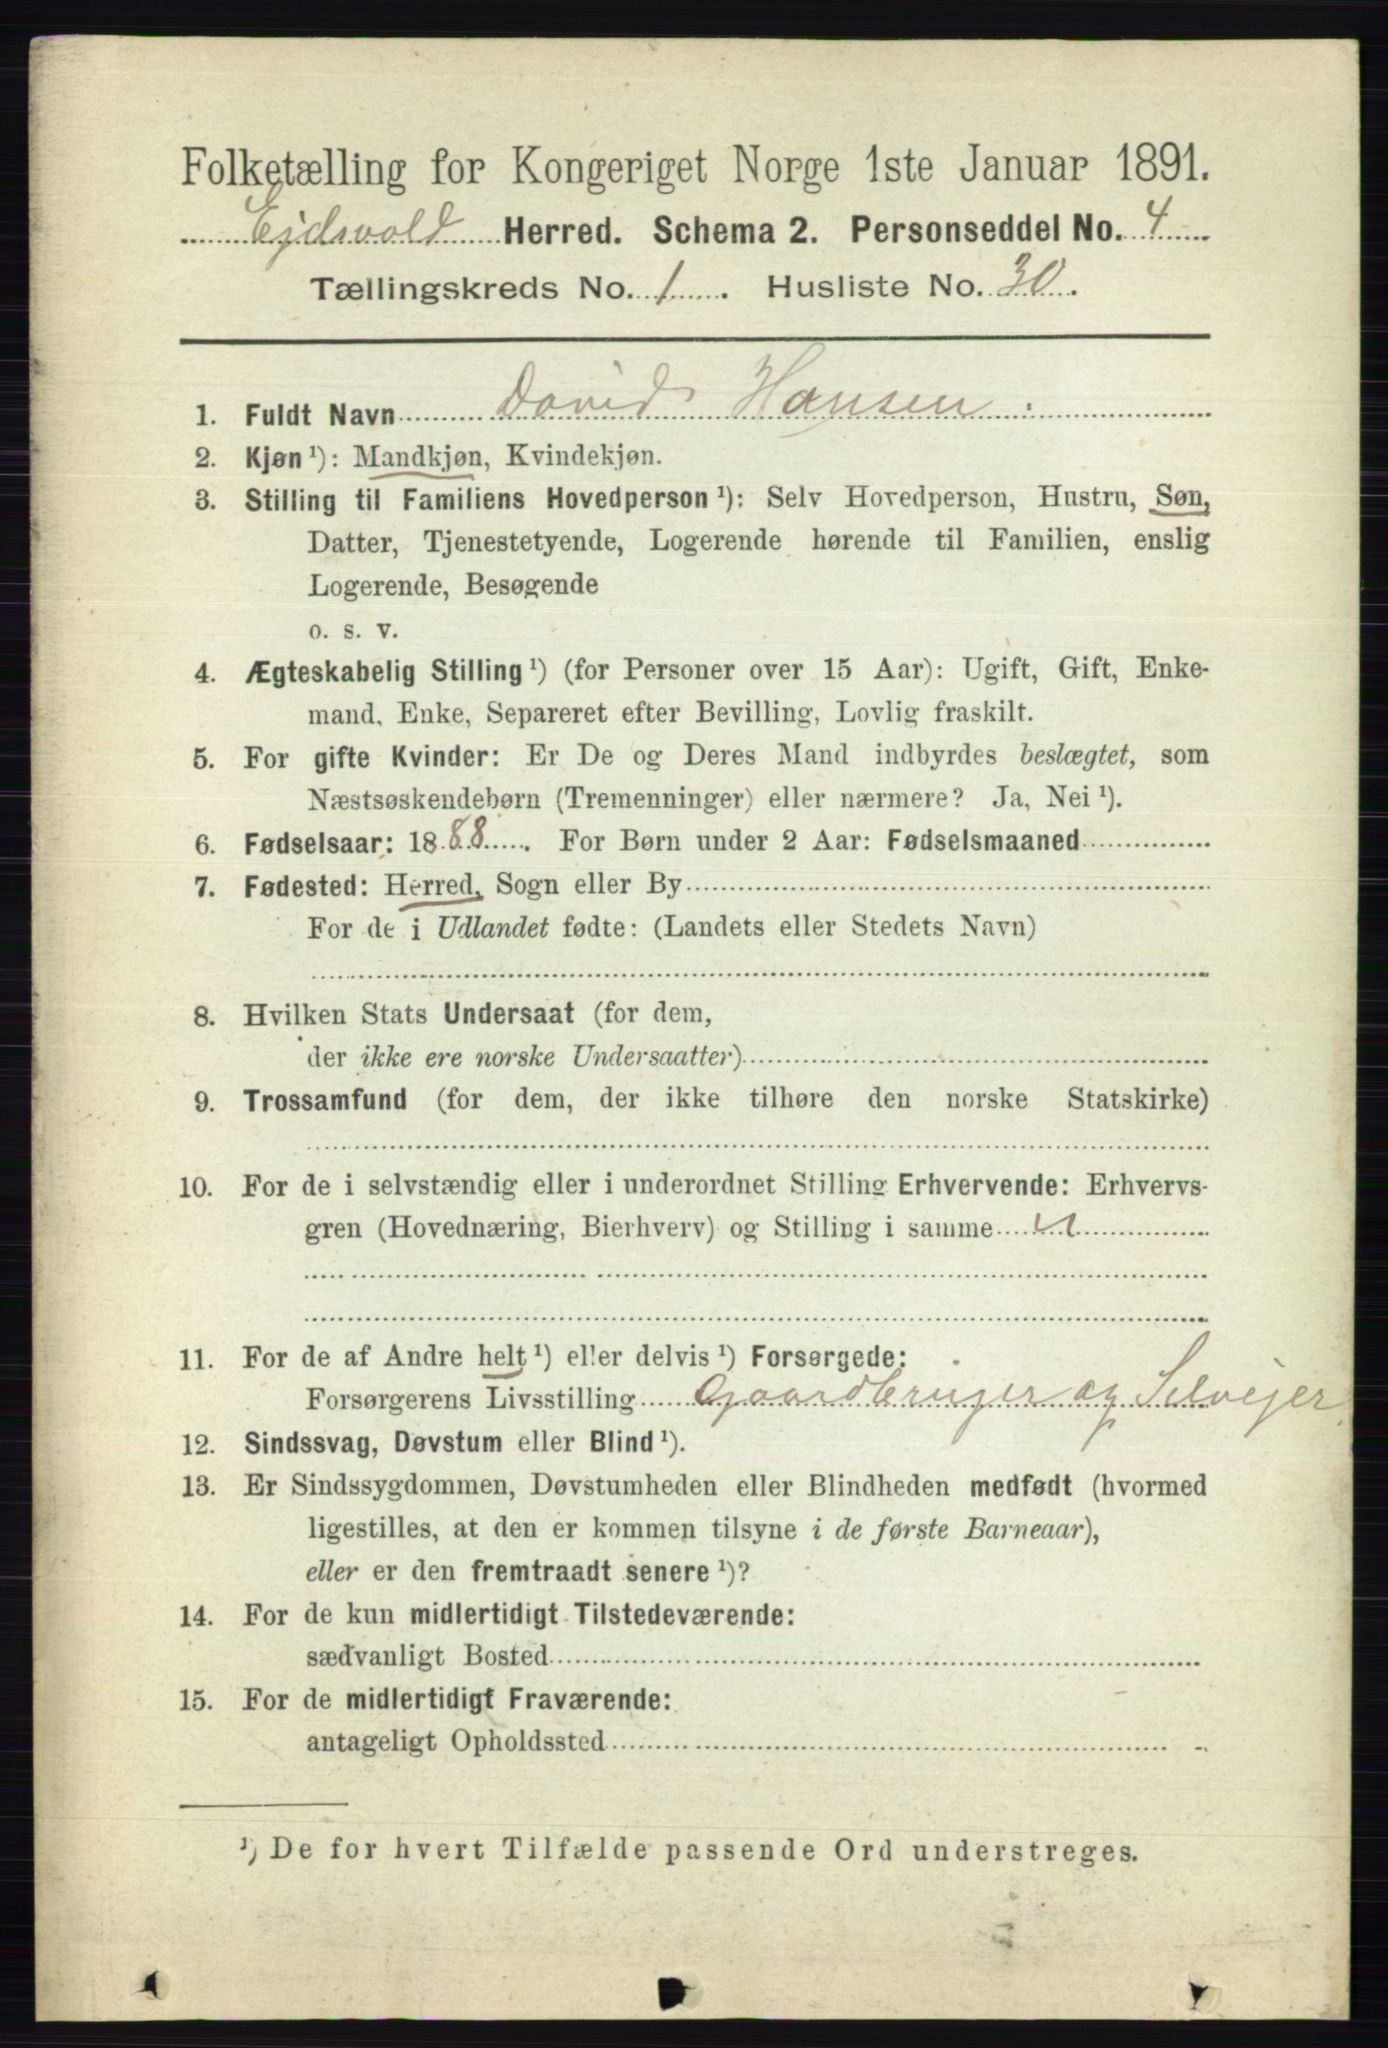 Folketælling for Kongeriget Norge 1ste Januar 1891.
Ejdsvold Herred. Schema 2. Personseddel No. 4
Tællingskreds No. 1. Husliste No. 30.
1. Fuldt Navn David Hansen.
2. Kjøn ¹): Mandkjøn, Kvindekjøn.
3. Stilling til Familiens Hovedperson ¹): Selv Hovedperson, Hustru, Søn,
Datter, Tjenestetyende, Logerende hørende til Familien, enslig
Logerende, Besøgende
o. s. v.
4. Ægteskabelig Stilling ¹) (for Personer over 15 Aar): Ugift, Gift, Enke-
mand, Enke, Separeret efter Bevilling, Lovlig fraskilt.
5. For gifte Kvinder: Er De og Deres Mand indbyrdes beslægtet, som
Næstsøskendebørn (Tremenninger) eller nærmere? Ja, Nei ¹).
6. Fødselsaar: 1888. For Børn under 2 Aar: Fødselsmaaned
7. Fødested: Herred, Sogn eller By
For de i Udlandet fødte: (Landets eller Stedets Navn)
8. Hvilken Stats Undersaat (for dem,
der ikke ere norske Undersaatter)
9. Trossamfund (for dem, der ikke tilhøre den norske Statskirke)
10. For de i selvstændig eller i underordnet Stilling Erhvervende: Erhvervs-
gren (Hovednæring, Bierhverv) og Stilling i samme
11. For de af Andre helt ¹) eller delvis ¹) Forsørgede:
Forsørgerens Livsstilling Gaardbruger og Selvejer
12. Sindssvag, Døvstum eller Blind ¹).
13. Er Sindssygdommen, Døvstumheden eller Blindheden medfødt (hvormed
ligestilles, at den er kommen tilsyne i de første Barneaar),
eller er den fremtraadt senere ¹)?
14. For de kun midlertidigt Tilstedeværende:
sædvanligt Bosted
15. For de midlertidigt Fraværende:
antageligt Opholdssted
¹) De for hvert Tilfælde passende Ord understreges.